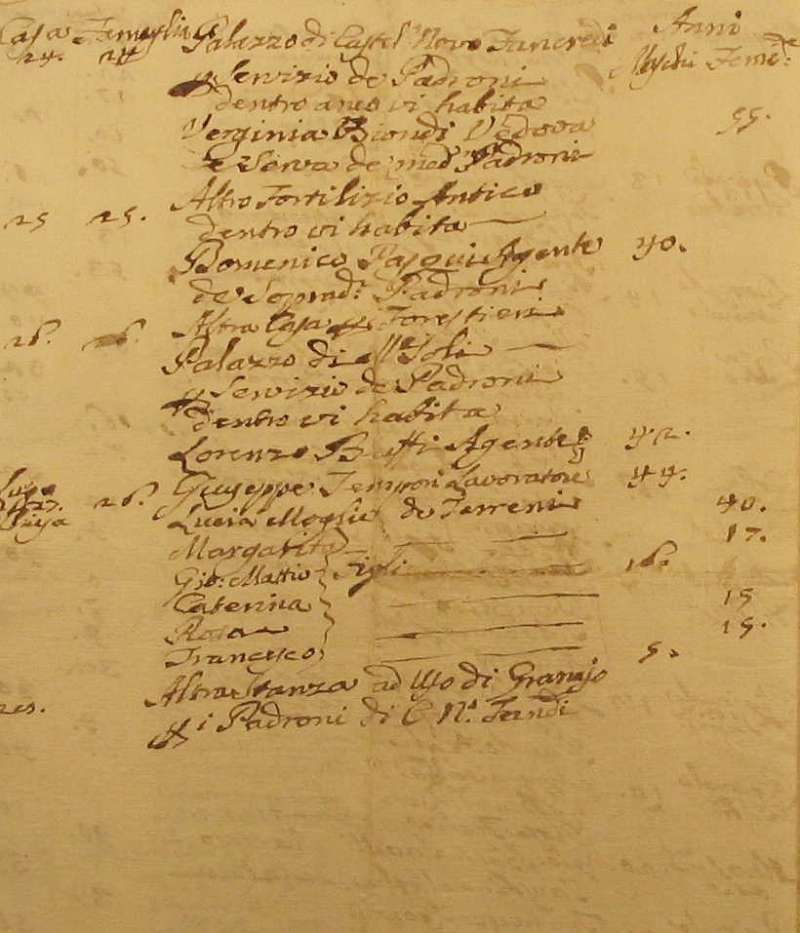 Casa Fameglie Palazzo di Castel Novo Tancredi Anni
24. 24 Maschi Fem.e
p Servizio de Padroni
dentro anco vi habita
Verginia Biondi Vedova 55.
e Serva de med.i Padroni
Altro Fortilizio Antico
25 25. dentro vi habita
Domenico Pasqui Agente 40.
de Soprad.i Padroni
26. 26. Altra Casa Forestieri
Palazzo di
p Servizio de Padroni
dentro vi habita
Lorenzo Buffi Agente 42.
26. Giuseppe Lavoratore 44.
27. Lucia Moglie de Terreni 40.
Margarita 17.
Gio: Mattio Figli 16.
Caterina 15
Rosa 15.
Francesco 5.
Altra Stanza ad Uso di Granajo
28. p i Padroni di C. N.o Tandi